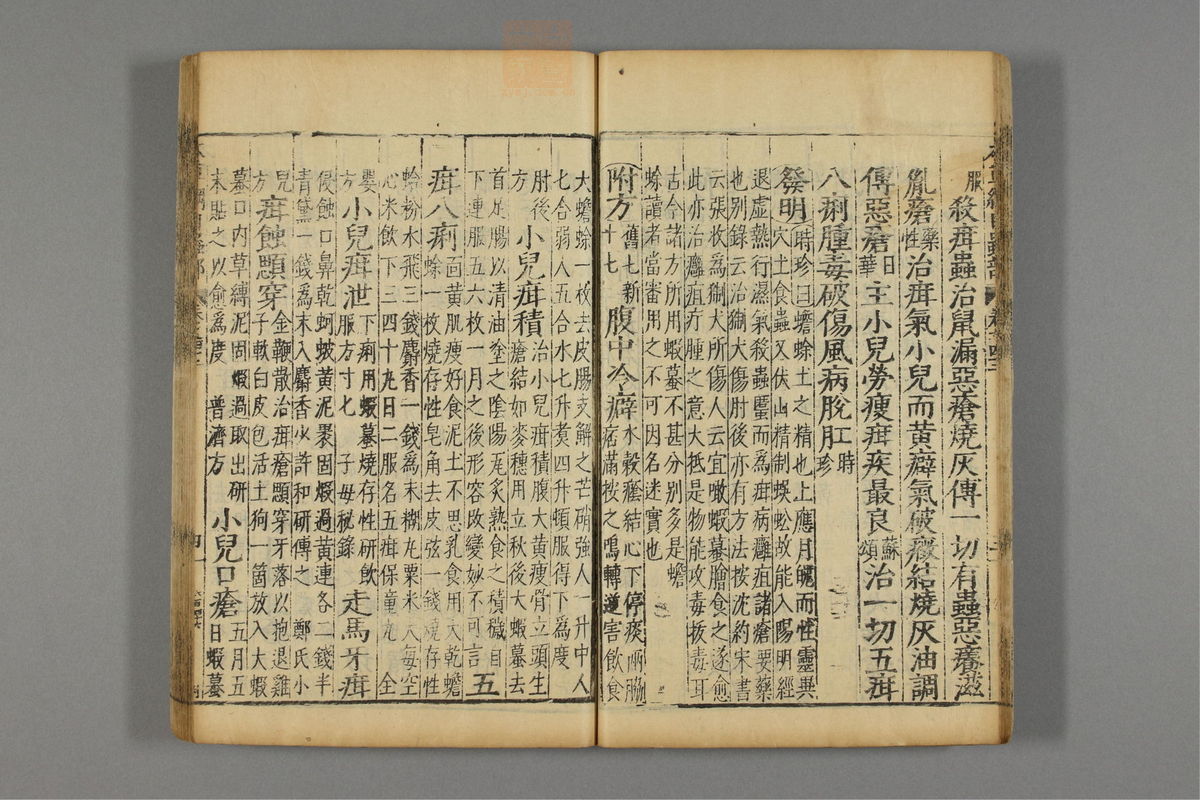 服殺疳蟲治鼠漏惡瘡燒灰傅一切有蟲惡癢滋
胤瘡藥性治疳氣小兒面黃癖氣破癥結燒灰油調
傅惡瘡日華主小兒勞瘦疳疾最良蘇頌治一切五疳
八痢腫毒破傷風病脫肛時珍
發明時珍曰蟾蜍土之精也上應月魄而性靈異
穴土食蟲又伏山精制蜈蚣故能入陽明經
退虛熱行濕氣殺蟲䘌而爲疳病癰疽諸瘡要藥
也別錄云治猘犬傷肘後亦有方法按沈約宋書
云張收爲猘犬所傷人云宜噉蝦蟇膾食之遂愈
此亦治癰疽疔腫之意大抵是物能攻毒拔毒耳
古今諸方所用蝦蟇不甚分別多是蟾
蜍讀者當審用之不可因名迷實也
附方舊七新十七腹中冷癖水穀癊結心下停痰兩脇
痞滿按之鳴轉逆害飲食
大蟾蜍一枚去皮腸支解之芒硝強人一升中人
七合弱人五合水七升煮四升頓服得下爲度
肘後方小兒疳積治小兒疳積腹大黃瘦骨立頭生
瘡結如麥穗用立秋後大蝦蟇去
首足腸以清油塗之陰陽瓦炙熟食之積穢自
下連服五六枚一月之後形容改變妙不可言五
疳八痢面黃肌瘦好食泥土不思乳食用大乾蟾
蜍一枚燒存性皂角去皮弦一錢燒存性
蛤粉水飛三錢麝香一錢爲末糊丸粟米大每空
心米飲下三四十丸日二服名五疳保童丸全
嬰方小兒疳泄下痢用蝦蟇燒存性研飲
服方寸匕子母秘錄走馬牙疳
侵蝕口鼻乾蚵蚾黃泥裹固煅過黃連各二錢半
青黛一錢爲末入麝香少許和研傅之鄭氏小
兒方疳蝕顋穿金鞭散治疳瘡顋穿牙落以抱退雞
子軟白皮包活土狗一箇放入大蝦
蟇口內草縛泥固煅過取出研
末貼之以愈爲度普濟方小兒口瘡五月五
日蝦蟇